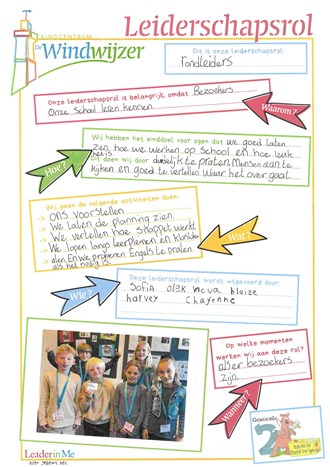 Leiderschapsrol
KINDCENTRUM
De Windwijzer
Dit is onze leiderschapsrol:
Rondleiders
Onze leiderschapsrol is belangrijk, omdat Bezoekers
Onze School leren kennen
Waarom?
Wij hebben het einddoel voor ogen dat we goed laten
zien, hoe we werken op School en hoe leuk
het is
Dit doen wij door duidelijk te praten Mensen aan te
kijken en goed te vertellen waar het over gaat.
Hoe?
Wij gaan de volgende activiteiten doen:
-> ons voorstellen
-> We laten de planning zien.
-> We vertellen hoe skoppit werkt
-> We lopen langs leerpleinen en klaslokalen
-> alen. En We proberen Engels te praten
als het nodig is.
Wat?
Deze leiderschapsrol wordt uitgevoerd door:
Sofia Olek blaize
harvey Chayenne
Wie?
Op welke momenten
werken wij aan deze rol?
als er bezoekers
zijn.
Wanneer?
Gewoonte
2
Leader in Me